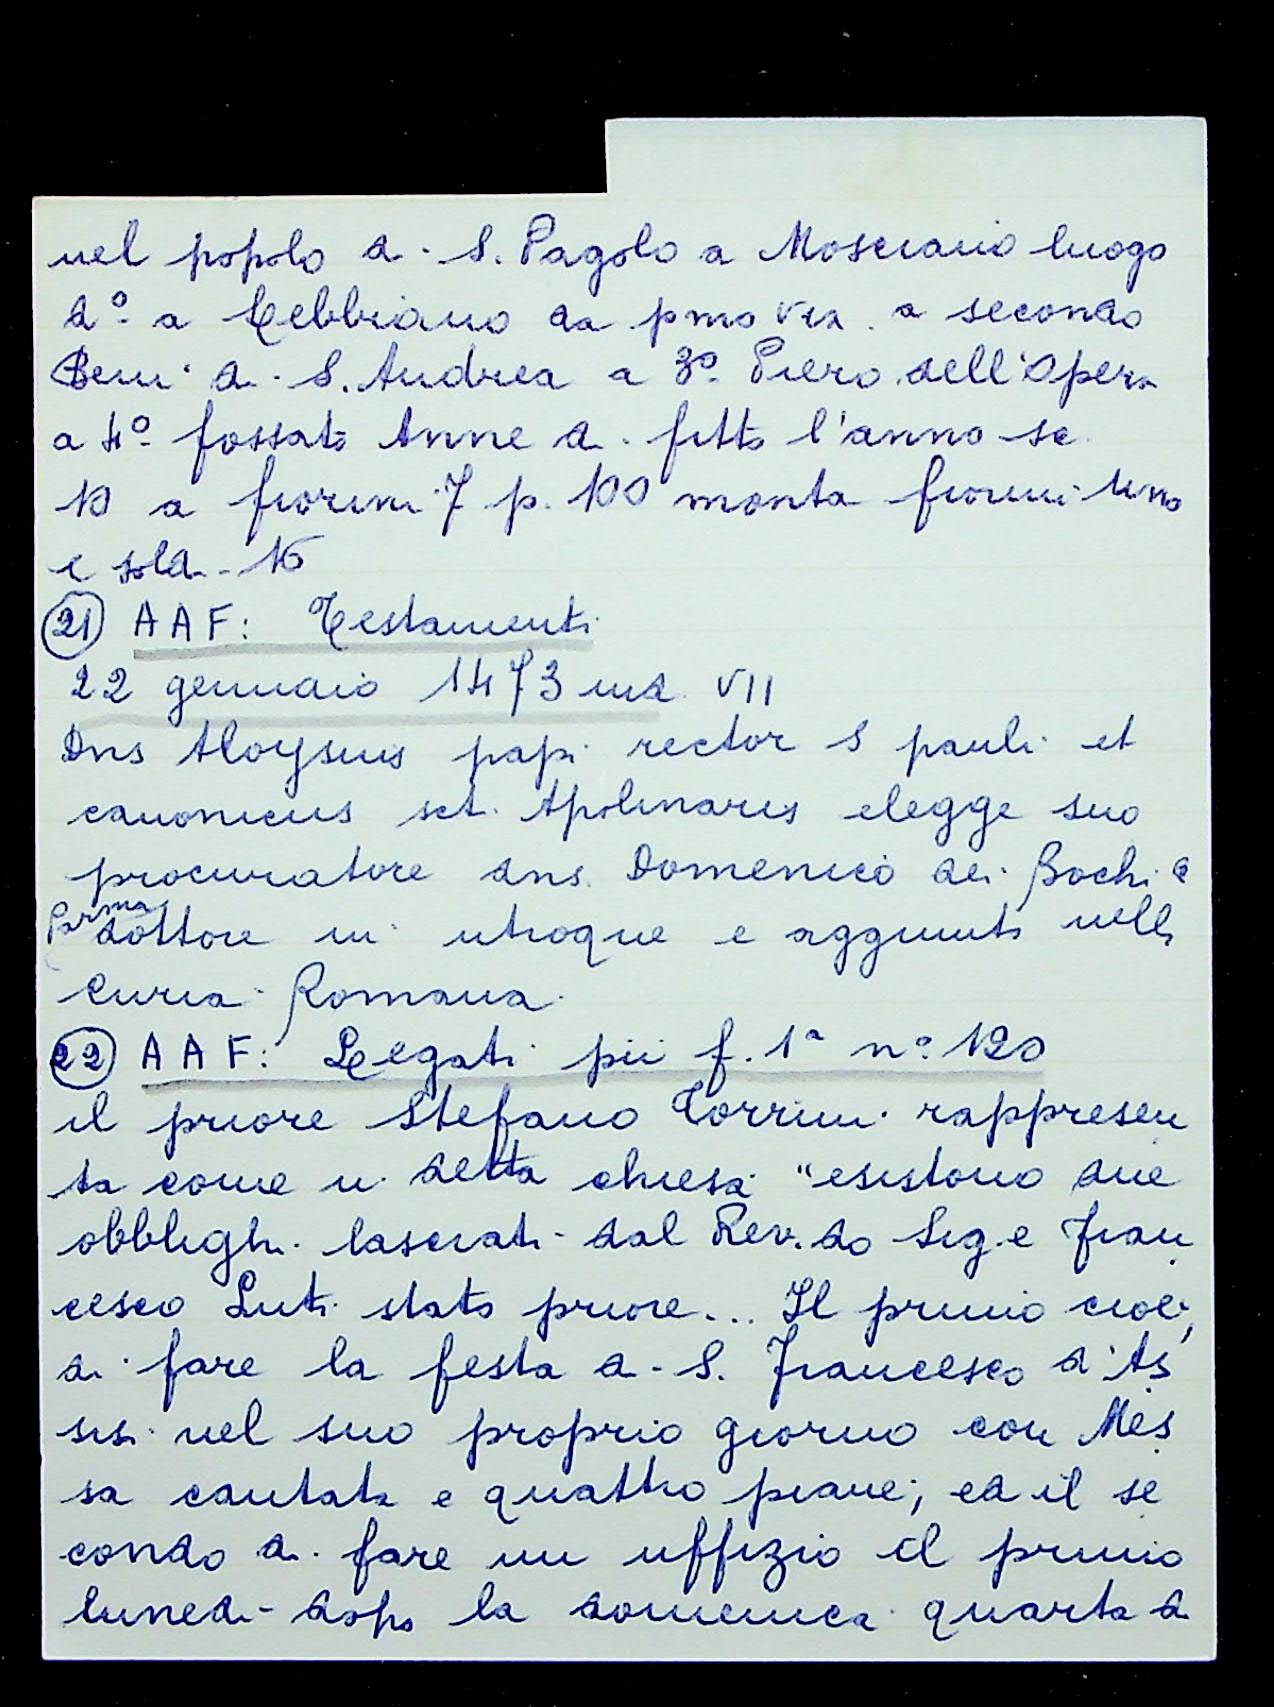 nel popolo di S. Pagolo a Mosciano luogo
d.º a Cebbiano da pmo via a secondo
Beni di S. Andrea a 3º Piero dell'Opera
a 4º fossato Anne di fitto l'anno
10 a fiorini 7 p. 100 monta fiorini uno
e soldi 16
(21) AAF: Testamenti
22 gennaio 1473 ind. VII
Dns Aloysius papi rector S pauli et
canonicus sct. Apolinaris elegge suo
procuratore dns. Domenico dei Bochi
Parma dottore in utroque e aggiunto nella
Curia Romana
(22) AAF: Legati pii f. 1ª nº 120
il priore Stefano Torrini rappresen
ta come in detta chiesa "esistono due
obblighi lasciati dal Rev.do Sig.e Fran
cesco Luti stato priore... Il primo cioè,
di fare la festa di S. Francesco d'As
sisi nel suo proprio giorno con Mes
sa cantata e quattro piane; ed il se
condo di fare un uffizio il primo
lunedi dopo la domenica quarta d